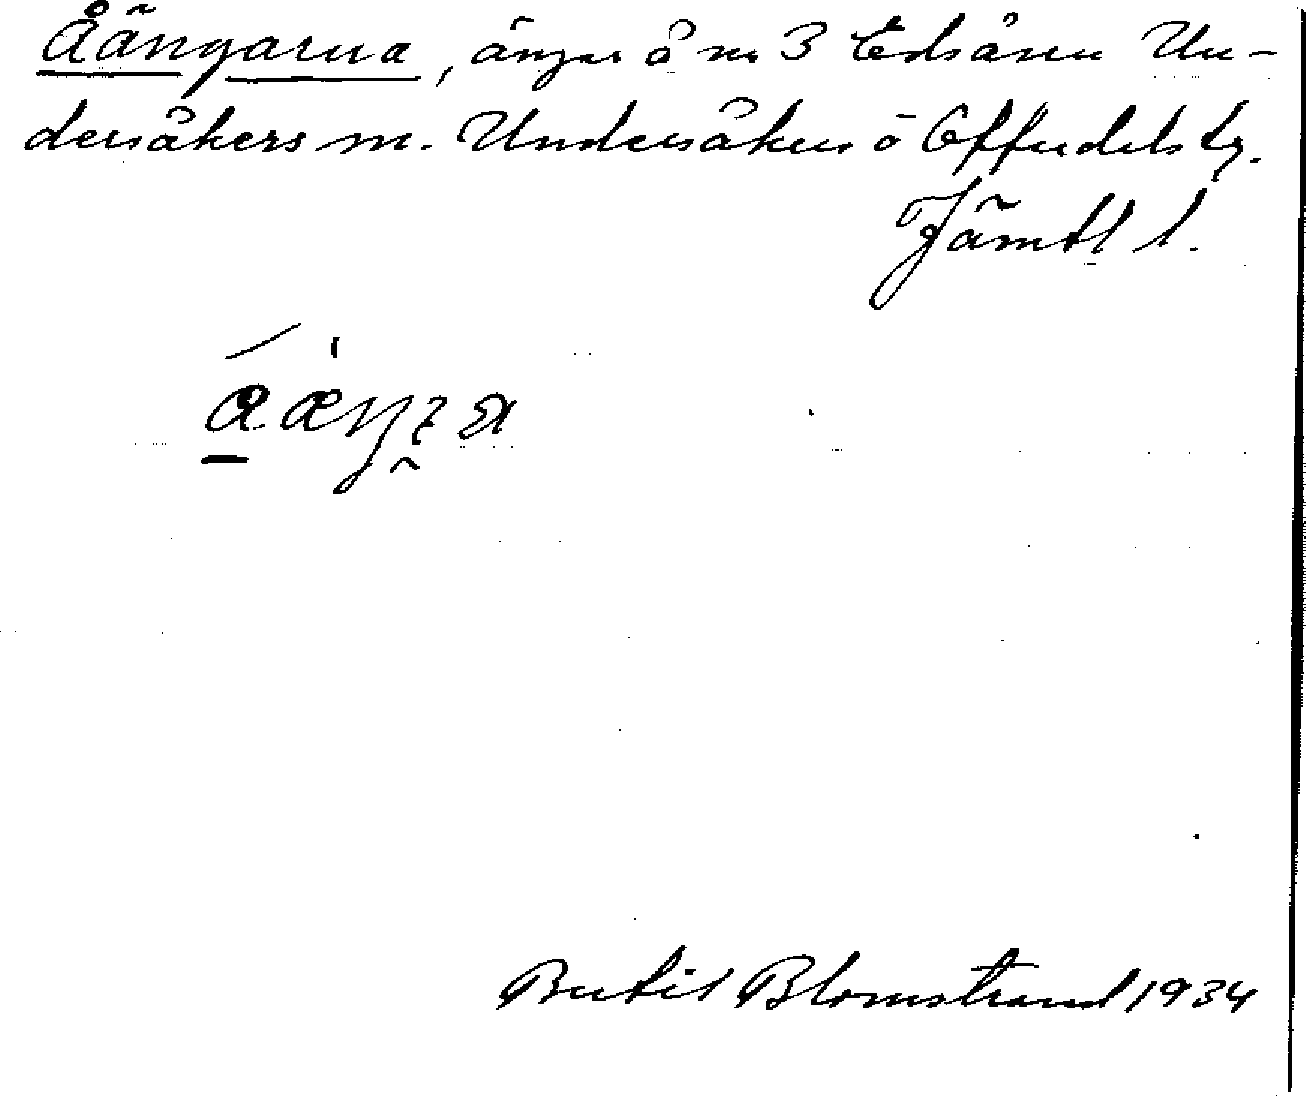 Åängarna, ängar å nr 3 Edsåsen Un-
dersåkers sn. Undersåkers o Offerdals tg.
Jämtl l.
Bertil Blomstrand 1934